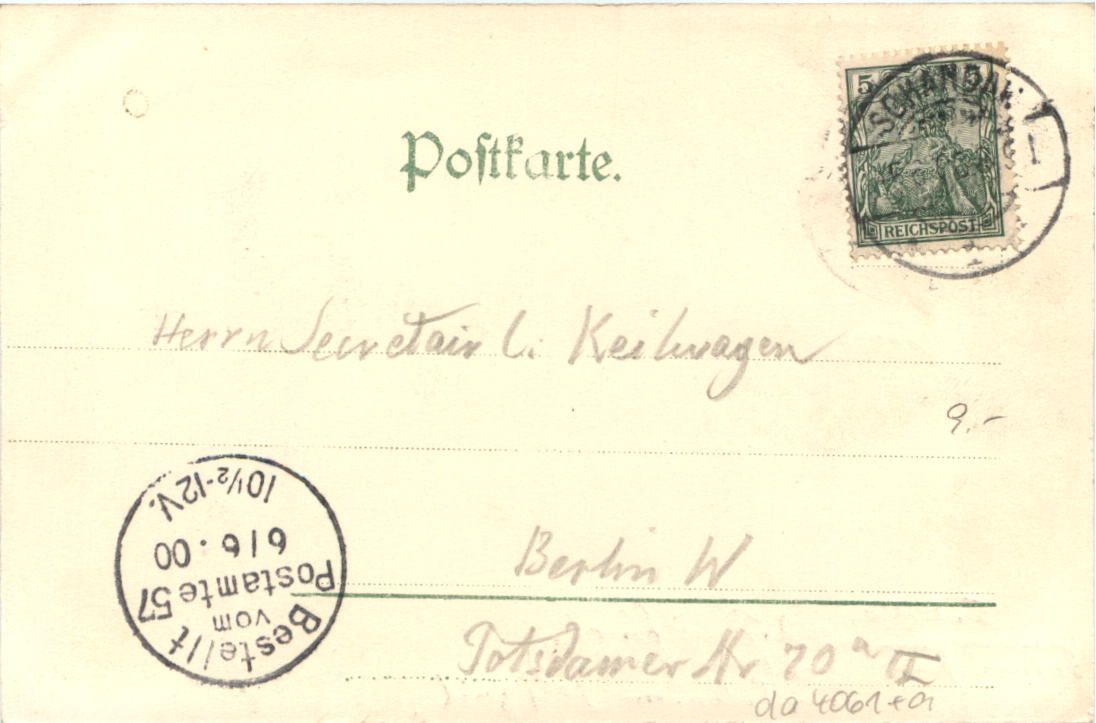 5
SCHANDAU
REICHSPOST
Postkarte.
Herrn Secretair C. Keilwagen
9.-
Bestellt
vom
Postamte 57
6/6.00
10½-12V.
Berlin W
Potsdamer Str 70 a II
da 4061+a